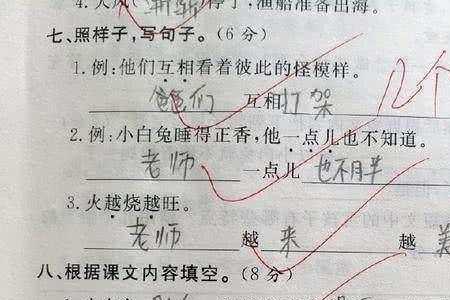 4.大风(渐渐)停了,渔船准备出海。
七、照样子,写句子。(6分)
1.例:他们互相看着彼此的怪模样。
爸爸们 互相打架
2.例:小白兔睡得正香,他一点儿也不知道。
老师 一点儿 也不胖
3.火越烧越旺。
老师 越 来 越 美
八、根据课文内容填空。(8分)